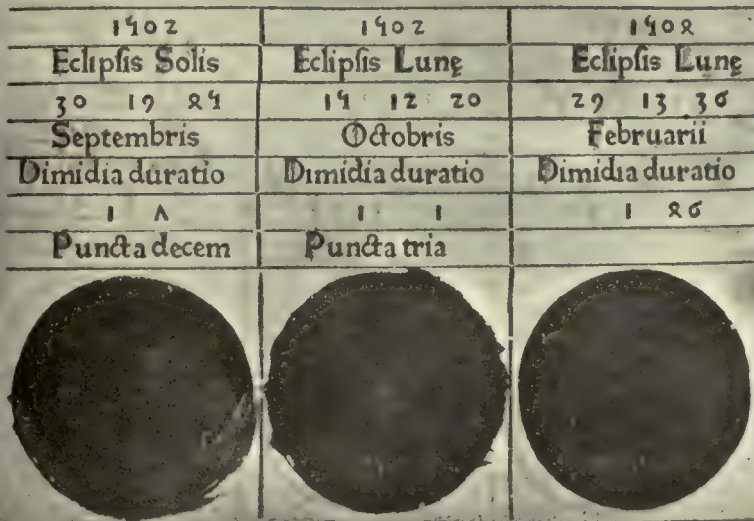 1502 1502 1504
Eclipſis Solis Eclipſis Lunę Eclipſis Lunę
30 19 45 15 12 20 29 13 36
Septembris Octobris Februarii
Dimidia duratio Dimidia duratio Dimidia duratio
1 7 1 1 1 46
Puncta decem Puncta tria